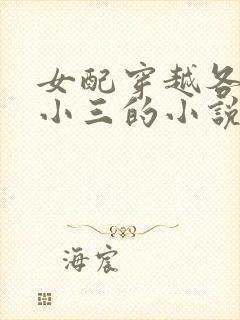 女配穿越各
小三的小説
海宸